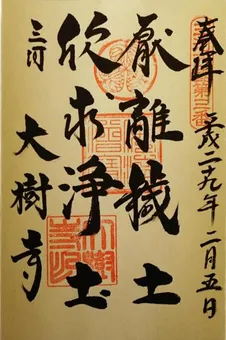 奉拝
平成二十九年二月五日
厭離穢土
欣求浄土
三河
大樹寺